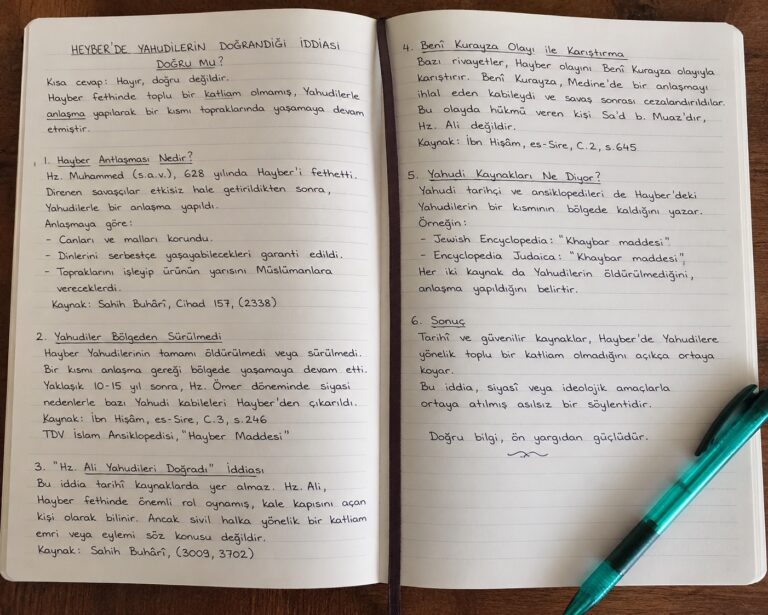 HEYBER'DE YAHUDİLERİN DOĞRANDIĞI İDDİASI
DOĞRU MU?
Kısa cevap: Hayır, doğru değildir.
Hayber fethinde toplu bir katliam olmamış, Yahudilerle
anlaşma yapılarak bir kısmı topraklarında yaşamaya devam
etmiştir.
1. Hayber Antlaşması Nedir?
Hz. Muhammed (s.a.v.), 628 yılında Hayber'i fethetti.
Direnen savaşçılar etkisiz hale getirildikten sonra,
Yahudilerle bir anlaşma yapıldı.
Anlaşmaya göre:
- Canları ve malları korundu.
- Dinlerini serbestçe yaşayabilecekleri garanti edildi.
- Topraklarını işleyip ürünün yarısını Müslümanlara
vereceklerdi.
Kaynak: Sahih Buhârî, Cihad 157, (2338)
2. Yahudiler Bölgeden Sürülmedi
Hayber Yahudilerinin tamamı öldürülmedi veya sürülmedi.
Bir kısmı anlaşma gereği bölgede yaşamaya devam etti.
Yaklaşık 10-15 yıl sonra, Hz. Ömer döneminde siyasi
nedenlerle bazı Yahudi kabileleri Hayber'den çıkarıldı.
Kaynak: İbn Hişâm, es-Sire, C.3, s.246
TDV İslam Ansiklopedisi, "Hayber Maddesi"
3. "Hz. Ali Yahudileri Doğradı" İddiası
Bu iddia tarihî kaynaklarda yer almaz. Hz. Ali,
Hayber fethinde önemli rol oynamış, kale kapısını açan
kişi olarak bilinir. Ancak sivil halka yönelik bir katliam
emri veya eylemi söz konusu değildir.
Kaynak: Sahih Buhârî, (3009, 3702)
4. Benî Kurayza Olayı ile Karıştırma
Bazı rivayetler, Hayber olayını Benî Kurayza olayıyla
karıştırır. Benî Kurayza, Medine'de bir anlaşmayı
ihlal eden kabileydi ve savaş sonrası cezalandırıldılar.
Bu olayda hükmü veren kişi Sa'd b. Muaz'dır,
Hz. Ali değildir.
Kaynak: İbn Hişâm, es-Sire, C.2, s.645
5. Yahudi Kaynakları Ne Diyor?
Yahudi tarihçi ve ansiklopedileri de Hayber'deki
Yahudilerin bir kısmının bölgede kaldığını yazar.
Örneğin:
- Jewish Encyclopedia: "Khaybar maddesi".
- Encyclopedia Judaica: "Khaybar maddesi",
Her iki kaynak da Yahudilerin öldürülmediğini,
anlaşma yapıldığını belirtir.
6. Sonuç
Tarihî ve güvenilir kaynaklar, Hayber'de Yahudilere
yönelik toplu bir katliam olmadığını açıkça ortaya
koyar.
Bu iddia, siyasî veya ideolojik amaçlarla
ortaya atılmış asılsız bir söylentidir.
Doğru bilgi, ön yargıdan güçlüdür.